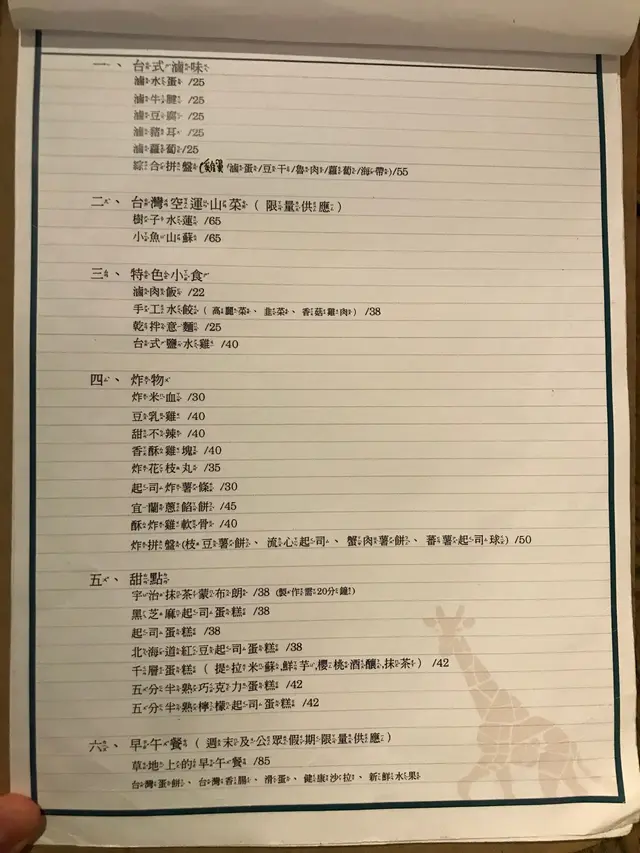 一、台式滷味
滷水蛋 /25
滷牛腱 /25
滷豆腐 /25
滷豬耳 /25
滷蘿蔔/25
綜合拼盤(滷蛋/豆干/魯肉/蘿蔔/海帶)/55
二、台灣空運山菜(限量供應)
樹子水蓮 /65
小魚山蘇 /65
三、特色小食
滷肉飯 /22
手工水餃(高麗菜、韭菜、香菇雞肉) /38
乾拌意麵 /25
台式鹽水雞 /40
四、炸物
炸米血 /30
豆乳雞 /40
甜不辣 /40
香酥雞塊 /40
炸花枝丸 /35
起司炸薯條 /30
宜蘭蔥餡餅 /45
酥炸雞軟骨 /40
炸拼盤(枝豆薯餅、流心起司、蟹肉薯餅、蕃薯起司球) /50
五、甜點
宇治抹茶蒙布朗 /38 (製作需20分鐘!)
黑芝麻起司蛋糕 /38
起司蛋糕 /38
北海道紅豆起司蛋糕 /38
千層蛋糕(提拉米蘇,鮮芋,櫻桃酒釀,抹茶) /42
五分半熟巧克力蛋糕 /42
五分半熟檸檬起司蛋糕 /42
六、早午餐(週末及公眾假期限量供應)
草地上的早午餐 /85
台灣蛋餅、台灣香腸、滑蛋、健康沙拉、新鮮水果